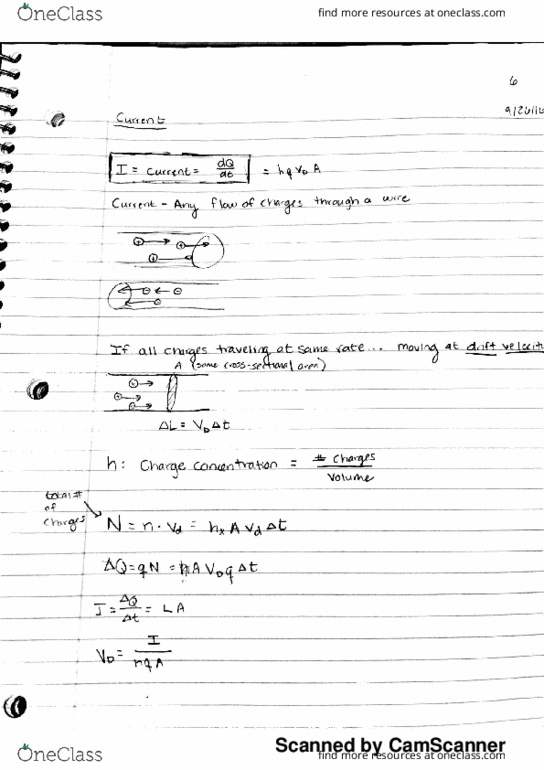 OneClass
find more resources at oneclass.com
6
9/26/16
Current
I = current = dQ/dt = nqv_DA
Current - Any flow of charges through a wire
If all charges traveling at same rate... moving at drift velocit
A (some cross-sectional area)
ΔL = V_DΔt
n: Charge concentration = # charges / Volume
total # of charges
N = n · v_d = n_x A v_d Δt
ΔQ = qN = nAV_DqΔt
I = ΔQ/Δt = LA
V_D = I / nqA
Scanned by CamScanner
OneClass
find more resources at oneclass.com